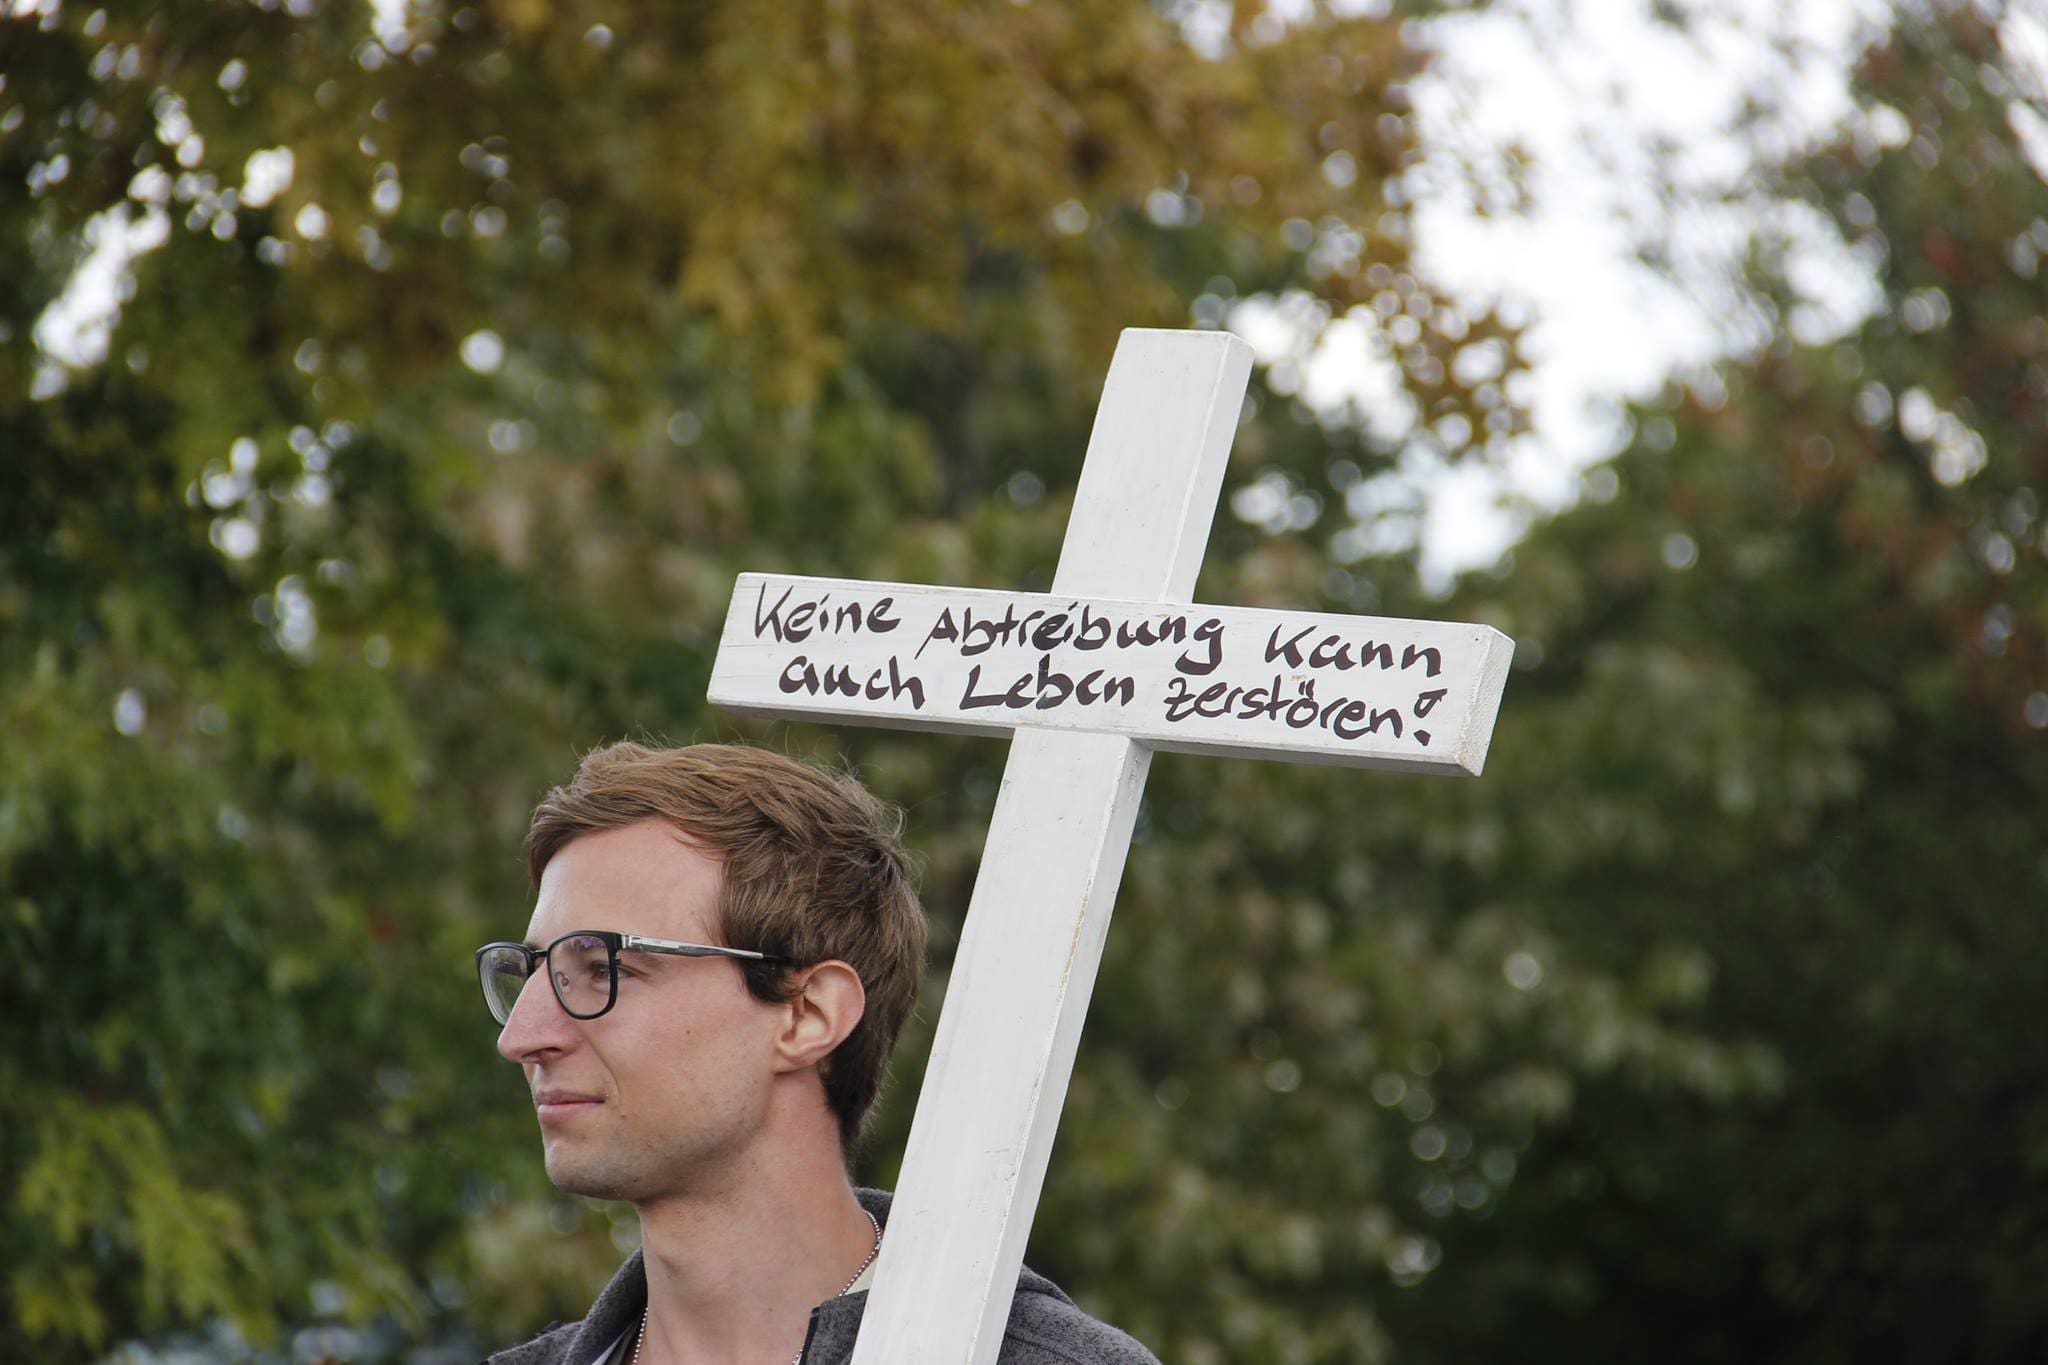 Keine Abtreibung kann
auch Leben zerstören!